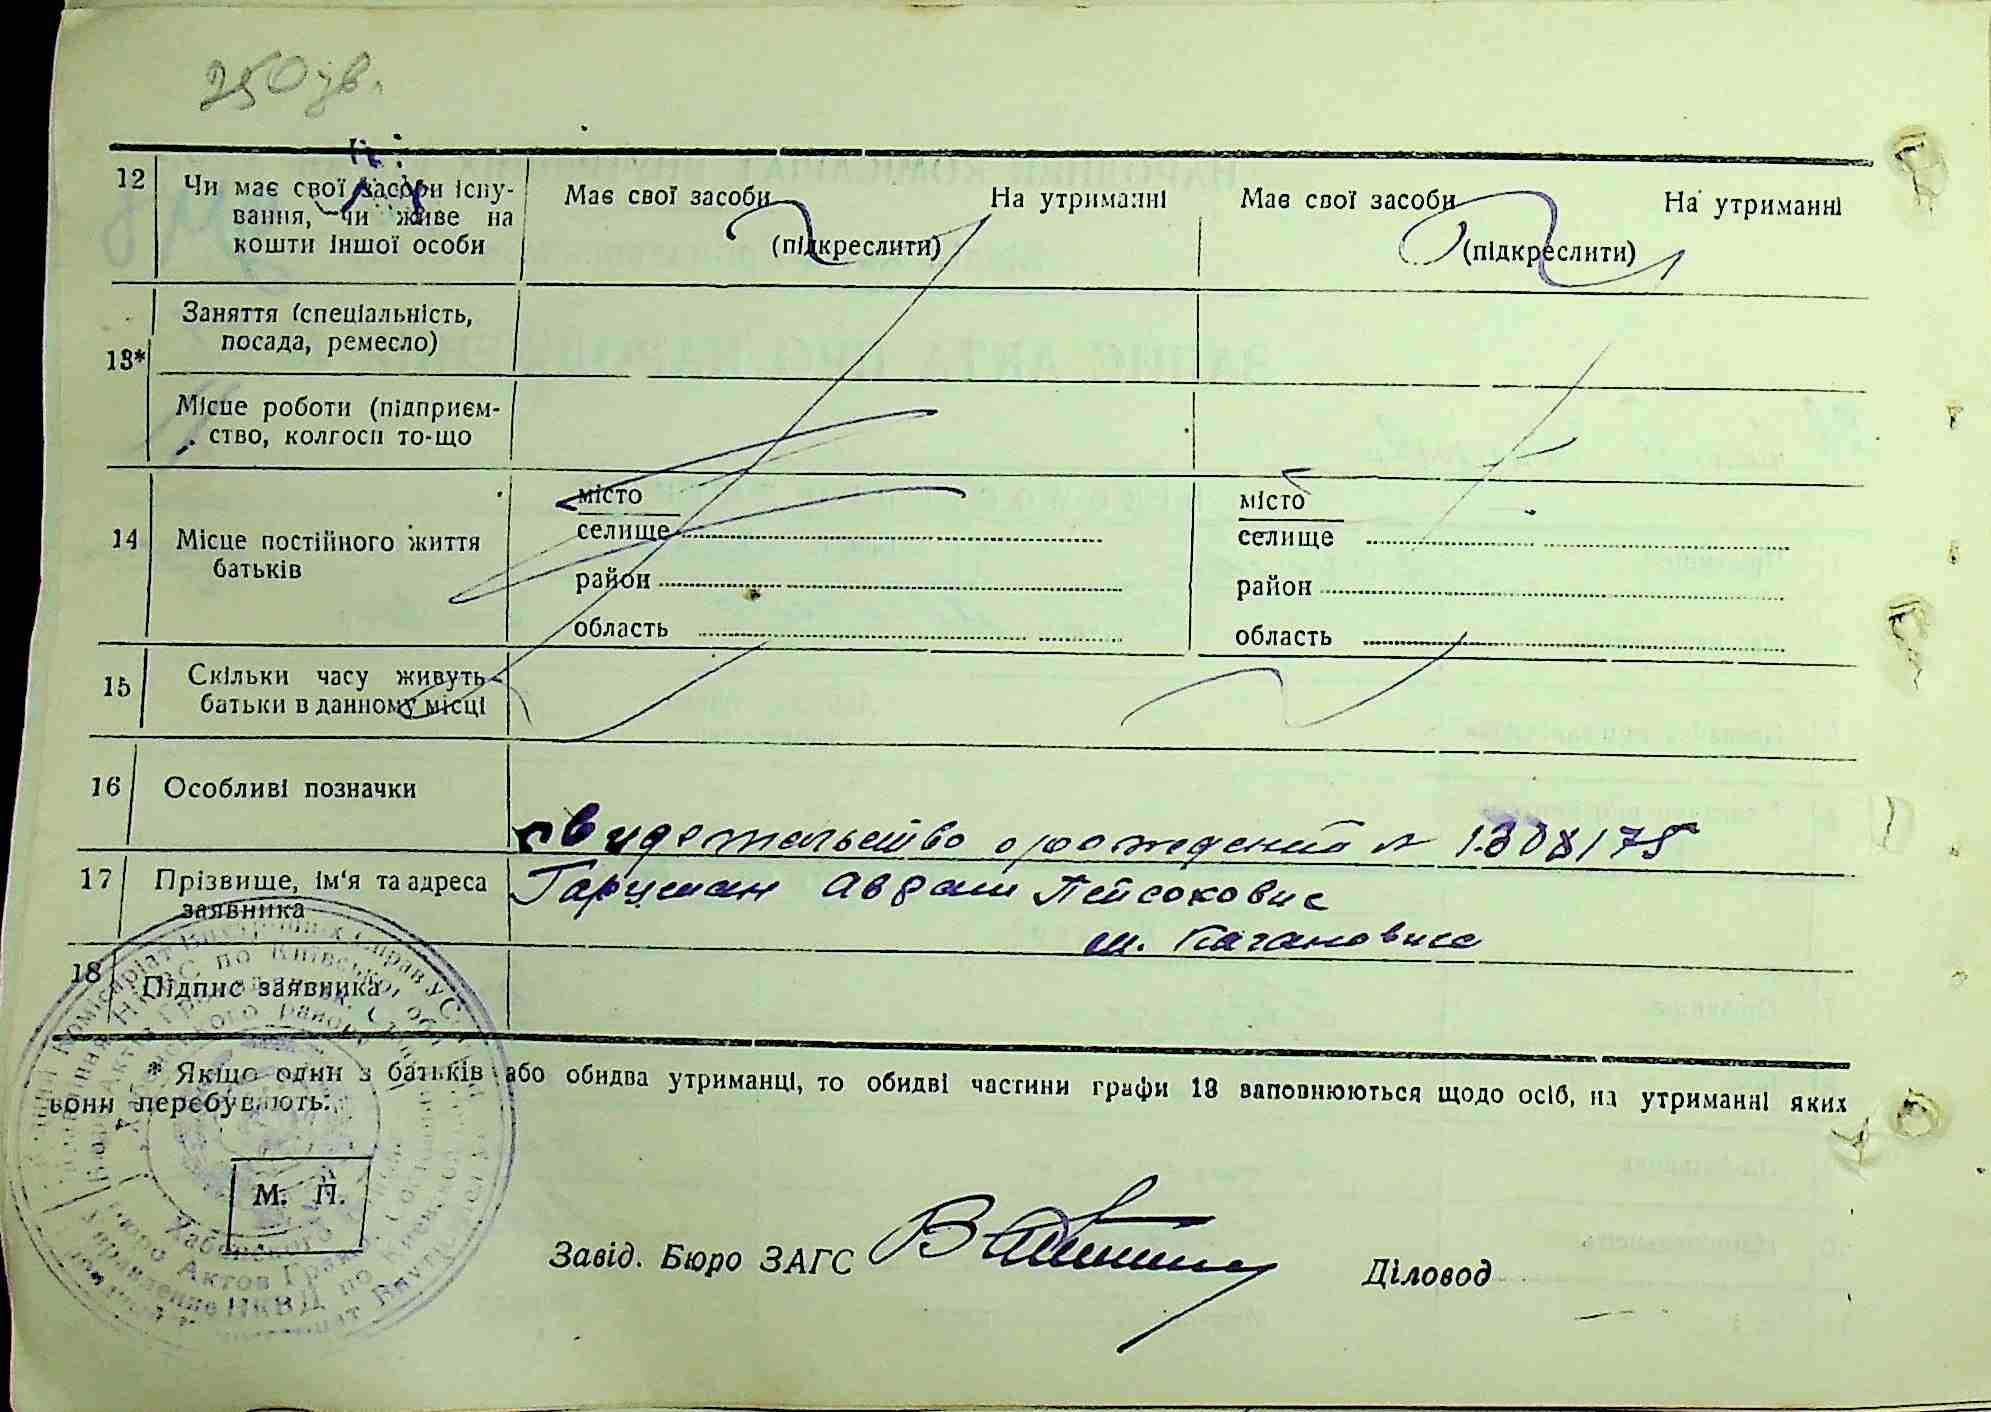 250
12
Чи має свої засоби існу-
вання, чи живе на
кошти іншої особи
Має свої засоби На утриманні
(підкреслити)
Має свої засоби На утриманні
(підкреслити)
13*
Заняття (спеціальність,
посада, ремесло)
Місце роботи (підприєм-
ство, колгосп то-що
14
Місце постійного життя
батьків
місто
селище
район
область
місто
селище
район
область
15
Скільки часу живуть
батьки в данному місці
16
Особливі позначки
свидетельство о рождении № 1308175
17
Прізвище, ім'я та адреса
заявника
Гарцман Аврам Пейсокович
м. Кагановича
18
Підпис заявника
* Якщо один з батьків або обидва утриманці, то обидві частини графи 13 заповнюються щодо осіб, на утриманні яких
вони перебувають.
М. П.
Завід. Бюро ЗАГС
Діловод